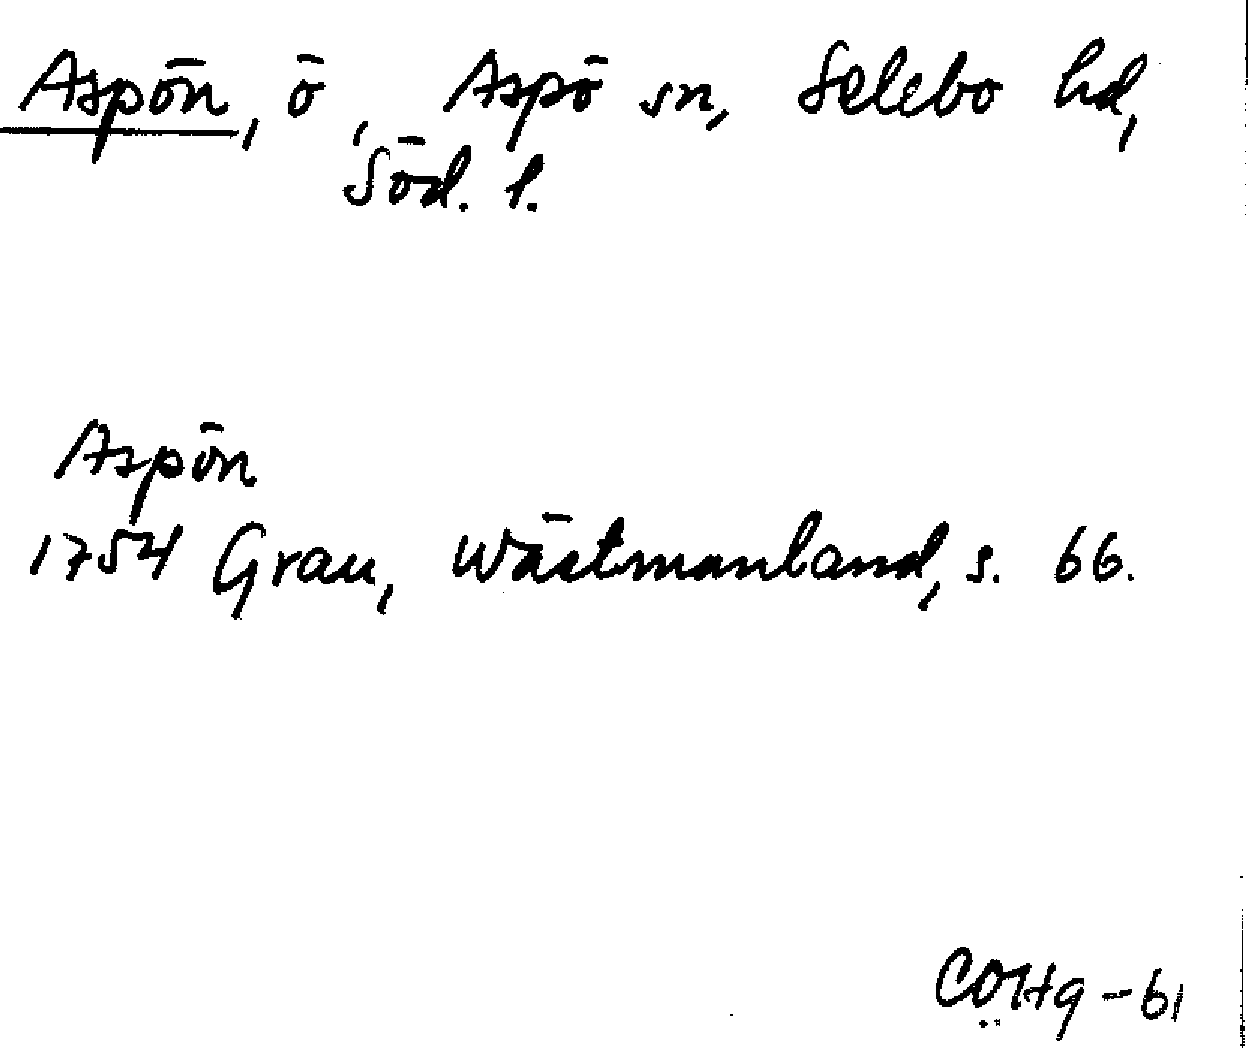 Aspön, ö, Aspö sn, Selebo hd,
Söd. l.
Aspön
1754 Grau, Wästmanland, s. 66.
COHg-61